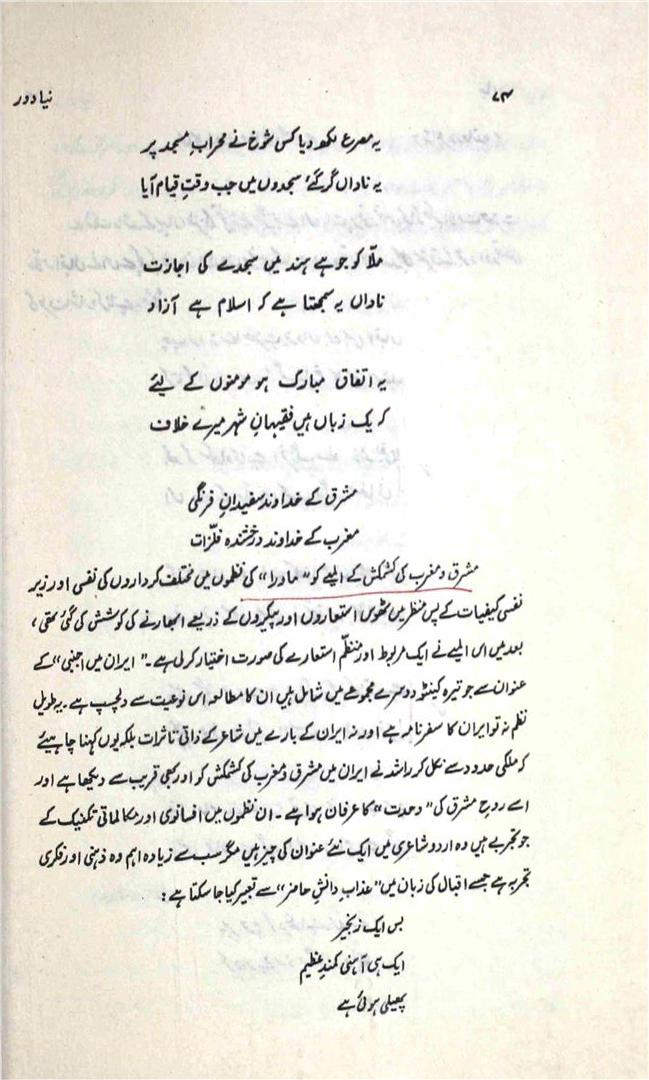 ۷۳
نیا دور
یہ مصرع لکھ دیا کس شوخ نے محرابِ مسجد پر
یہ ناداں گر گئے سجدوں میں جب وقتِ قیام آیا
ملّا کو جو ہے ہند میں سجدے کی اجازت
ناداں یہ سمجھتا ہے کہ اسلام ہے آزاد
یہ اتفاق مبارک ہو مومنوں کے لئے
کہ یک زباں ہیں فقیہانِ شہر میرے خلاف
مشرق کے خداوند سفیدانِ فرنگی
مغرب کے خداوند درخشندہ فلزّات
مشرق و مغرب کی کشمکش کے المیے کو "ماورا" کی نظموں میں مختلف کرداروں کی نفسی اور زیر
نفسی کیفیات کے پس منظر میں ٹھوس استعاروں اور پیکروں کے ذریعے ابھارنے کی کوشش کی گئی تھی،
بعد میں اس المیے نے ایک مربوط اور منظّم استعارے کی صورت اختیار کر لی ہے۔ "ایران میں اجنبی" کے
عنوان سے جو تیرہ کینٹو دوسرے مجموعے میں شامل ہیں ان کا مطالعہ اس نوعیت سے دلچسپ ہے۔ یہ طویل
نظم نہ تو ایران کا سفر نامہ ہے اور نہ ایران کے بارے میں شاعر کے ذاتی تاثرات بلکہ یوں کہنا چاہیئے
کہ ملکی حدود سے نکل کر راشد نے ایران میں مشرق و مغرب کی کشمکش کو اور بھی قریب سے دیکھا ہے اور
اسے روحِ مشرق کی "وحدت" کا عرفان ہوا ہے۔ ان نظموں میں افسانوی اور مکالماتی تکنیک کے
جو تجربے ہیں وہ اردو شاعری میں ایک نئے عنوان کی چیز ہیں مگر سب سے زیادہ اہم وہ ذہنی اور فکری
تجربہ ہے جسے اقبال کی زبان میں "عذابِ دانشِ حاضر" سے تعبیر کیا جا سکتا ہے:
بس ایک زنجیر
ایک ہی آہنی کمندِ عظیم
پھیلی ہوئی ہے